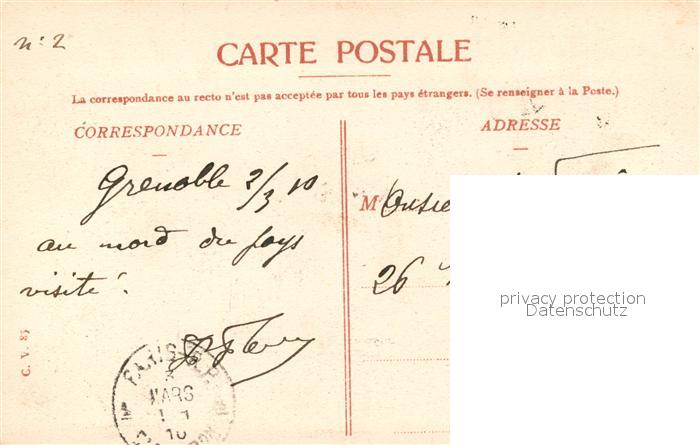 n: 2
CARTE POSTALE
La correspondance au recto n'est pas acceptée par tous les pays étrangers. (Se renseigner à la Poste.)
CORRESPONDANCE
ADRESSE
Grenoble 2/3 10
au nord du pays
visité.
Monsie
26
privacy protection
Datenschutz
C. V. 85
PARIS
3
MARS
10